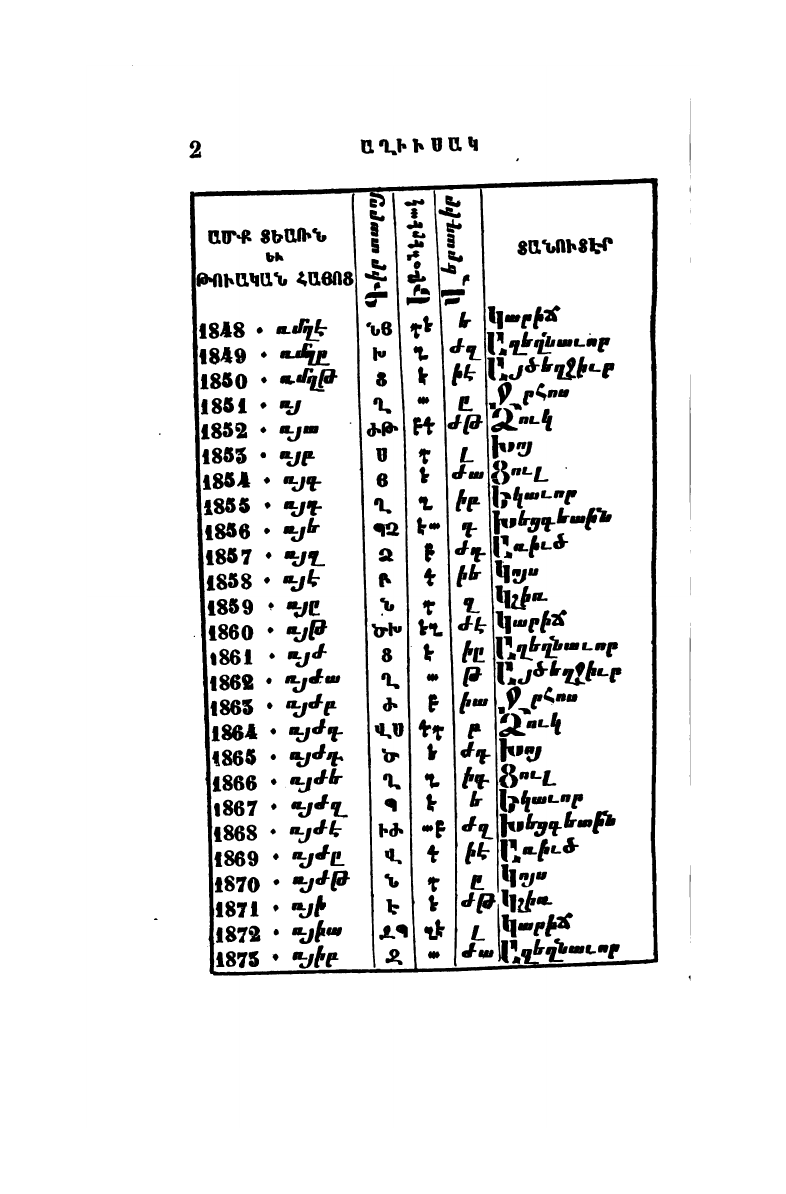 2 ԱՂԻՒՍԱԿ
ԱՄՔ ՏԵԱՌՆ
ԵՒ
ԹՈՒԱԿԱՆ ՀԱՅՈՑ
ՏԱՆՈՒՏԷՐ
1848 • ռմղէ ՆՅ դե ե Կարիճ
1849 • ռմղը Խ զ ժզ Աղեղնաւոր
1850 • ռմղթ Ց է իէ Այծեղջիւր
1851 • ռյ Ղ ա ը Ջրհոս
1852 • ռյա ԺԹ բգ ժթ Ձուկ
1853 • ռյբ Ս դ լ Խոյ
1854 • ռյգ Յ ե ժա Ցուլ
1855 • ռյդ Զ զ իբ Երկաւոր
1856 • ռյե ՊՉ էա գ Խեցգետին
1857 • ռյզ Ձ բ ժդ Առիւծ
1858 • ռյէ Բ գ իե Կոյս
1859 • ռյը Ն դ զ Կշիռ
1860 • ռյթ ԾԽ եզ ժէ Կարիճ
1861 • ռյժ Ց է իը Աղեղնաւոր
1862 • ռյժա Ղ ա թ Այծեղջիւր
1863 • ռյժբ Ժ բ իա Ջրհոս
1864 • ռյժգ ՎՍ գդ բ Ձուկ
1865 • ռյժդ Ծ ե ժգ Խոյ
1866 • ռյժե Զ զ իդ Ցուլ
1867 • ռյժզ Պ է ե Երկաւոր
1868 • ռյժէ ԻԺ աբ ժզ Խեցգետին
1869 • ռյժը Վ գ իէ Առիւծ
1870 • ռյժթ Ն դ ը Կոյս
1871 • ռյի Է ե ժթ Կշիռ
1872 • ռյիա ՋՊ զէ լ Կարիճ
1873 • ռյիբ Ղ ա ժա Աղեղնաւոր